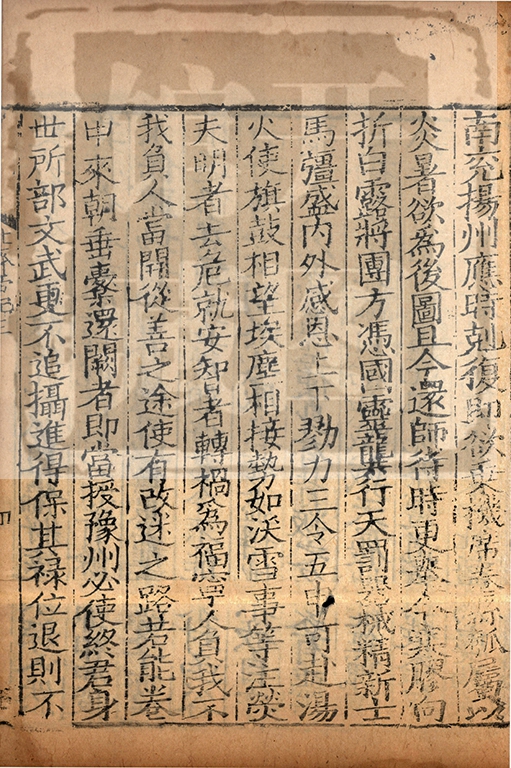 南兖揚州應時剋復即欲乗機席卷縣瓠屬以
炎暑欲為後圖且令還師待時更舉今寒膠向
折白露將團方馮國靈龔行天罰器械精新士
馬彊盛内外感恩上下勠力三令五申可赴湯
火使旗鼓相望埃塵相接勢如沃雪事等注熒
夫明者去危就安智者轉禍為福寜人負我不
我負人當開從善之途使有改迷之路若能卷
甲來朝垂櫜還闕者即當授豫州必使終君身
世所部文武更不追攝進得保其禄位退則不